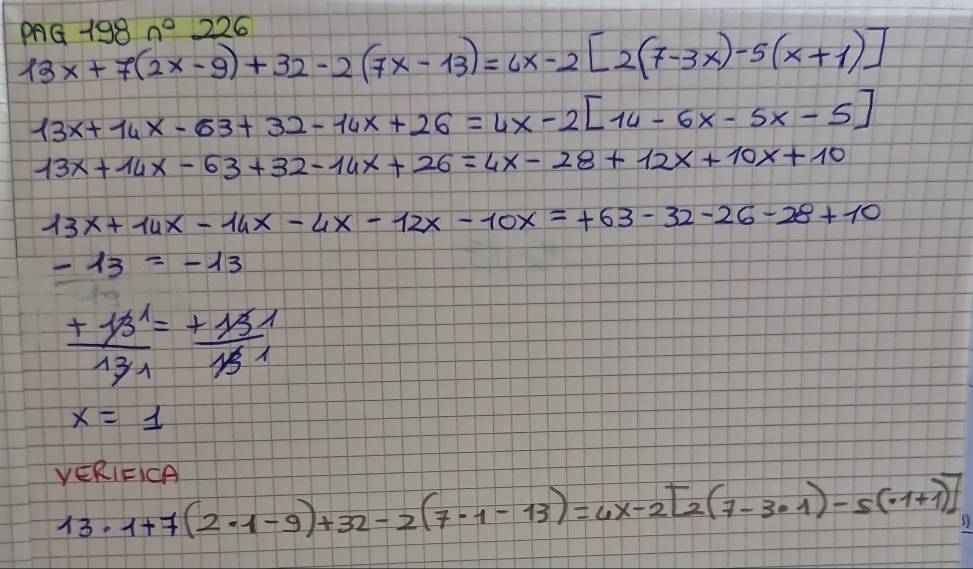 PAG 198 n° 226
13x + 7(2x - 9) + 32 - 2(7x - 13) = 4x - 2[2(7-3x) - 5(x+1)]
13x + 14x - 63 + 32 - 14x + 26 = 4x - 2[14 - 6x - 5x - 5]
13x + 14x - 63 + 32 - 14x + 26 = 4x - 28 + 12x + 10x + 10
13x + 14x - 14x - 4x - 12x - 10x = +63 - 32 - 26 - 28 + 10
- 13 = - 13
+ 13 1 = + 13 1
13 1 13 1
x = 1
VERIFICA
13·1+7(2·1-9)+32-2(7·1-13)=4x-2[2(7-3·1)-5(·1+1)]